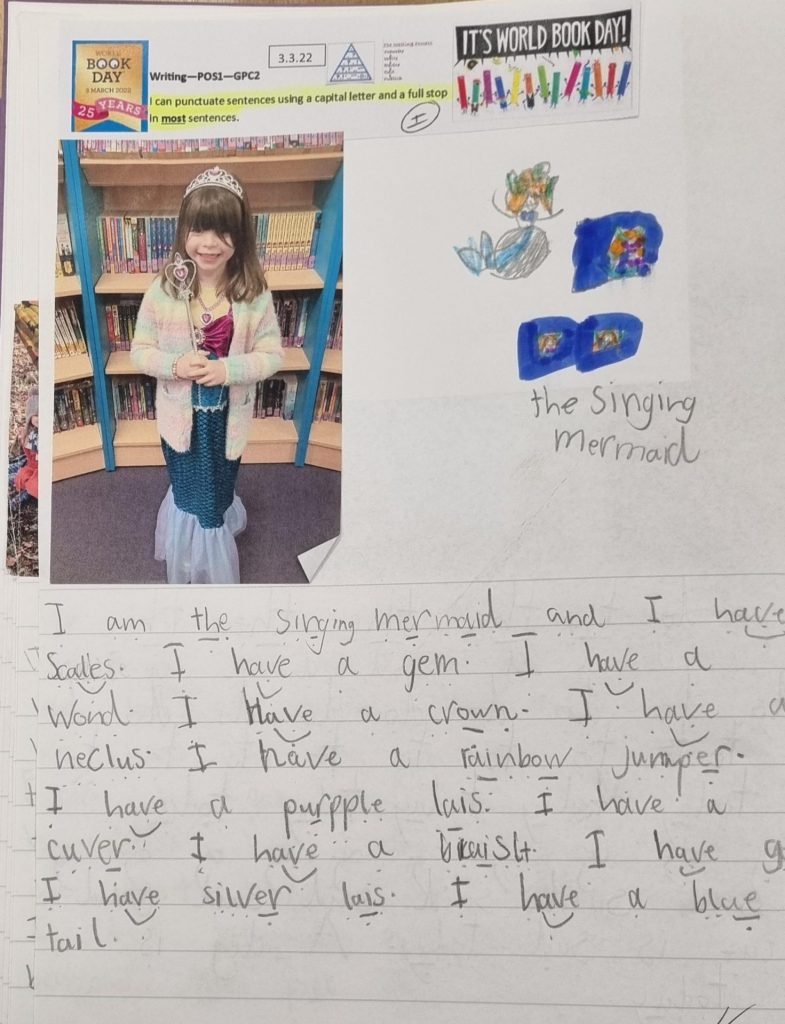 WORLD
BOOK
DAY
3 MARCH 2022
25 YEARS
3.3.22
Writing—POS1—GPC2
I can punctuate sentences using a capital letter and a full stop
in most sentences.
I
IT'S WORLD BOOK DAY!
the singing
mermaid
I am the singing mermaid and I have
Scales. I have a gem. I have a
Wond. I Have a crown. I have a
neclus. I have a rainbow jumper.
I have a purpple lais. I have a
cuver. I have a braislt. I have g
I have silver lais. I have a blue
tail.